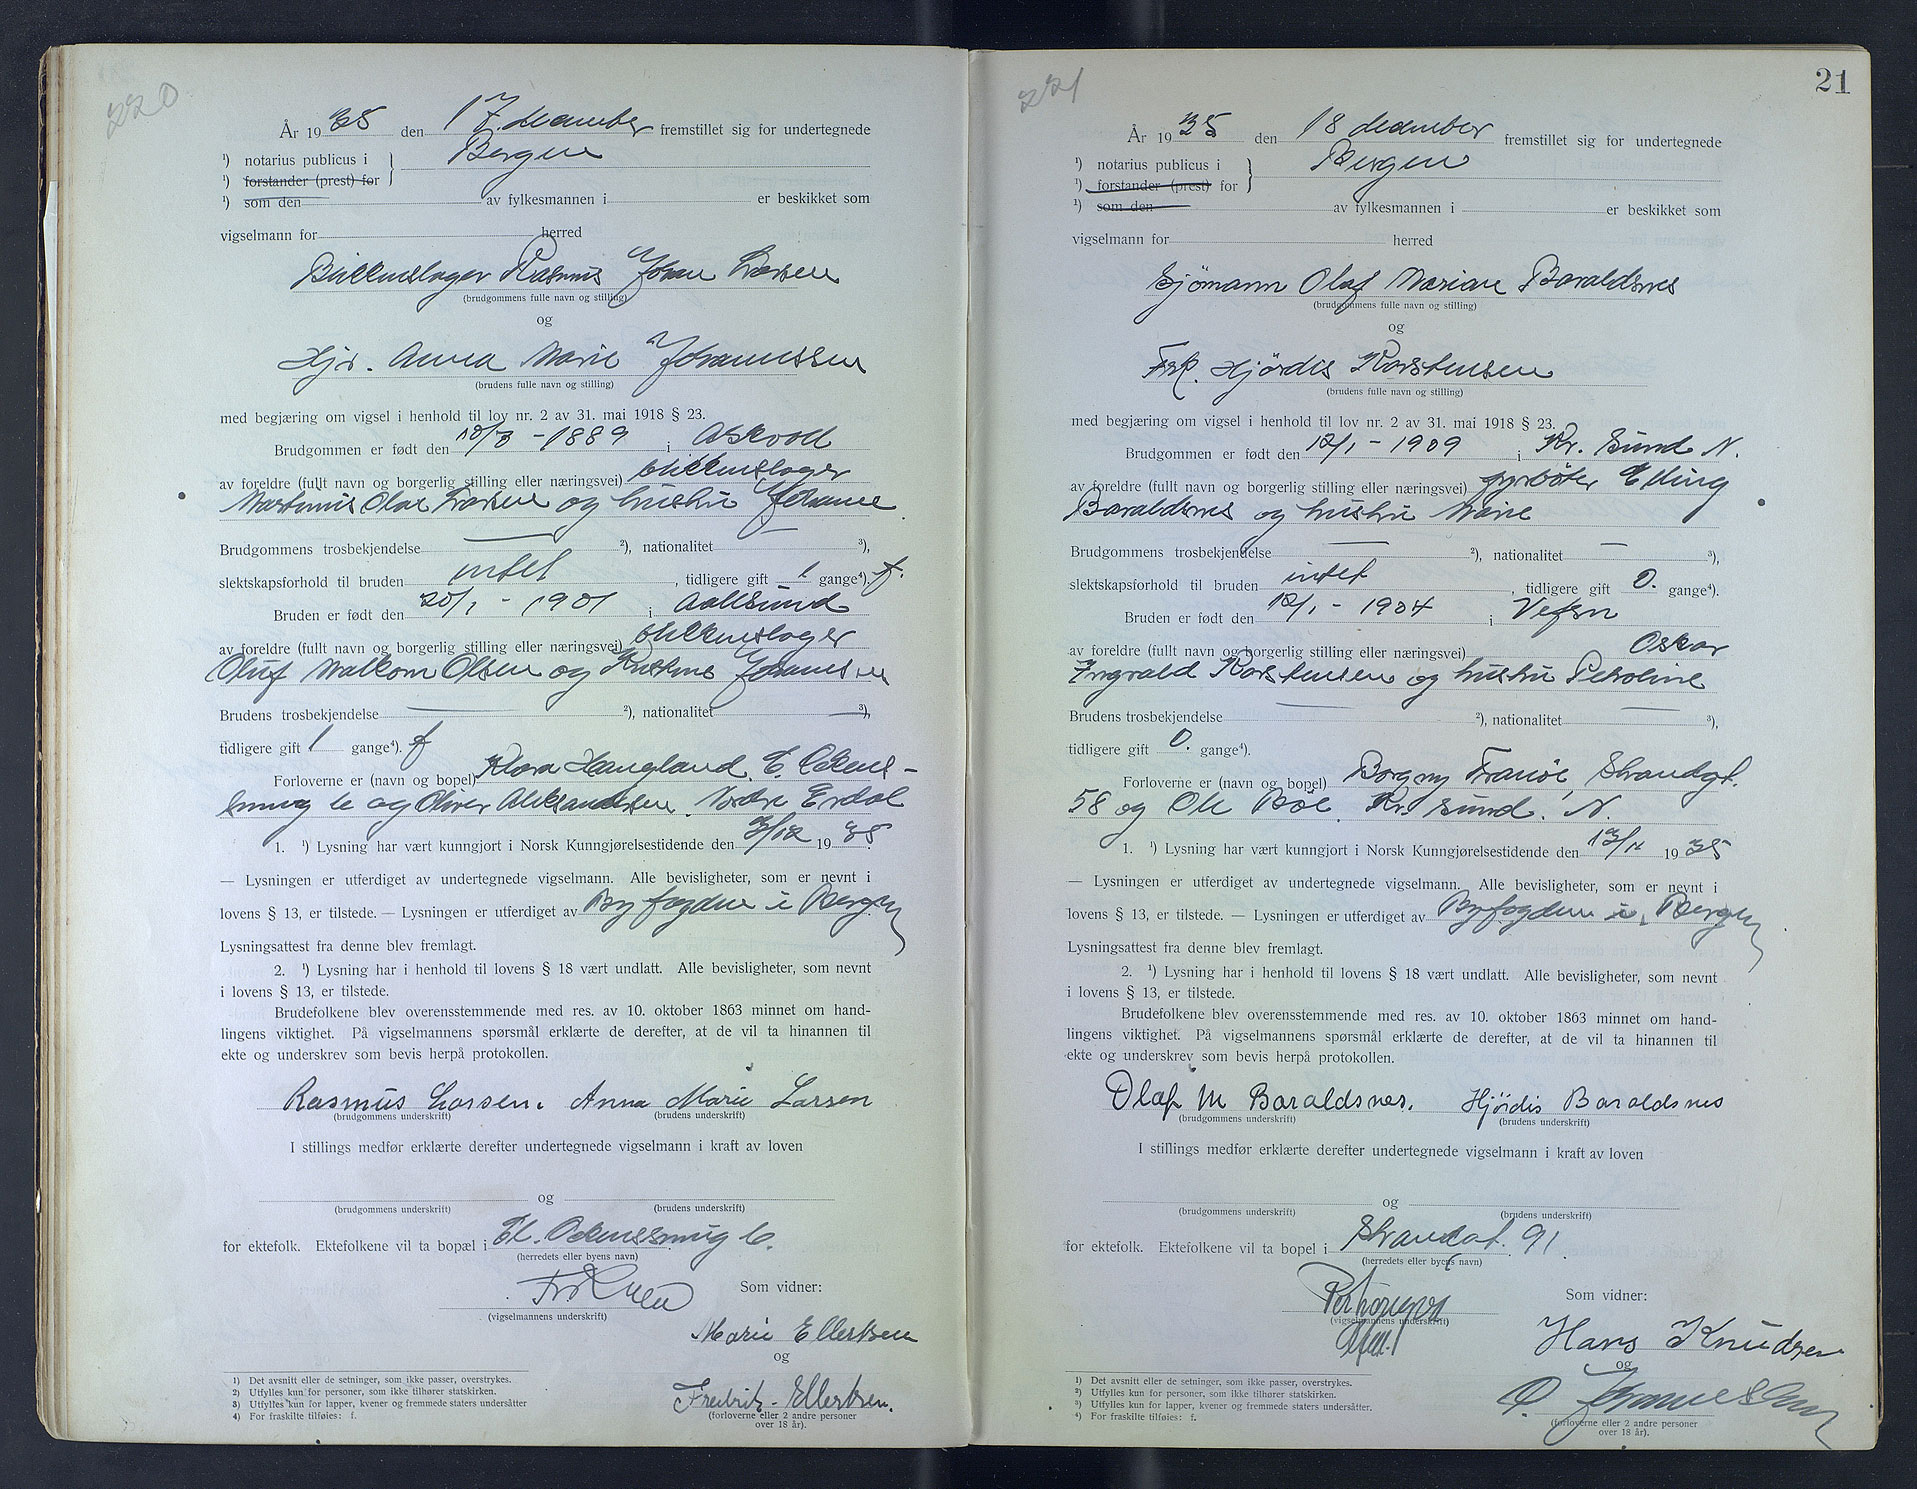 220
År 1935 den 17. december fremstillet sig for undertegnede
¹) notarius publicus i } Bergen
¹) forstander (prest) for
¹) som den av fylkesmannen i er beskikket som
vigselmann for herred
Blikkenslager Rasmus Johan Larsen
(brudgommens fulle navn og stilling)
og
Hjr. Anna Marie Johannessen
(brudens fulle navn og stilling)
med begjæring om vigsel i henhold til lov nr. 2 av 31. mai 1918 § 23.
Brudgommen er født den - 1889 i Askvoll
av foreldre (fullt navn og borgerlig stilling eller næringsvei) blikkenslager
Martinus Olai Larsen og hustru Johanne
Brudgommens trosbekjendelse — ²), nationalitet — ³),
slektskapsforhold til bruden intet , tidligere gift 1 gange⁴). f.
Bruden er født den 20/1 - 1901 i Aalesund
av foreldre (fullt navn og borgerlig stilling eller næringsvei) blikkenslager
Oluf Olsen og Johannessen
Brudens trosbekjendelse — ²), nationalitet — ³),
tidligere gift 1 gange⁴). f
Forloverne er (navn og bopel) Klara Haugland, E.
smug 6 og Oliver Aleksandersen. Nordre Erdal
1. ¹) Lysning har vært kunngjort i Norsk Kunngjørelsestidende den 3/12 1935
— Lysningen er utferdiget av undertegnede vigselmann. Alle bevisligheter, som er nevnt i
lovens § 13, er tilstede. — Lysningen er utferdiget av Byfogden i Bergen
Lysningsattest fra denne blev fremlagt.
2. ¹) Lysning har i henhold til lovens § 18 vært undlatt. Alle bevisligheter, som nevnt
i lovens § 13, er tilstede.
Brudefolkene blev overensstemmende med res. av 10. oktober 1863 minnet om hand-
lingens viktighet. På vigselmannens spørsmål erklærte de derefter, at de vil ta hinannen til
ekte og underskrev som bevis herpå protokollen.
Rasmus Larsen. Anna Marie Larsen
(brudgommens underskrift) (brudens underskrift)
I stillings medfør erklærte derefter undertegnede vigselmann i kraft av loven
og
(brudgommens underskrift) (brudens underskrift)
for ektefolk. Ektefolkene vil ta bopæl i 6.
(herredets eller byens navn)
Som vidner:
(vigselmannens underskrift)
Marie Ellertsen
og
Fredrik Ellertsen.
(forloverne eller 2 andre personer
over 18 år).
1) Det avsnitt eller de setninger, som ikke passer, overstrykes.
2) Utfylles kun for personer, som ikke tilhører statskirken.
3) Utfylles kun for lapper, kvener og fremmede staters undersåtter
4) For fraskilte tilføies: f.
221
21
År 1935 den 18 december fremstillet sig for undertegnede
¹) notarius publicus i } Bergen
¹) forstander (prest) for
¹) som den av fylkesmannen i er beskikket som
vigselmann for herred
Sjömann Olaf Mariare Baraldsnes
(brudgommens fulle navn og stilling)
og
Frk. Hjördis Korstensen
(brudens fulle navn og stilling)
med begjæring om vigsel i henhold til lov nr. 2 av 31. mai 1918 § 23.
Brudgommen er født den 12/1 - 1909 i Kr. Sund N.
av foreldre (fullt navn og borgerlig stilling eller næringsvei) fyrbøter Elling
Baraldsnes og hustru Marie
Brudgommens trosbekjendelse — ²), nationalitet — ³),
slektskapsforhold til bruden intet , tidligere gift 0. gange⁴).
Bruden er født den 12/1 - 1904 i Vefsn
av foreldre (fullt navn og borgerlig stilling eller næringsvei) Oskar
Ingvald Korstensen og hustru Petroline
Brudens trosbekjendelse — ²), nationalitet — ³),
tidligere gift 0. gange⁴).
Forloverne er (navn og bopel) Borgny Strandgt.
58 og Ole Kr. sund. N.
1. ¹) Lysning har vært kunngjort i Norsk Kunngjørelsestidende den 1935
— Lysningen er utferdiget av undertegnede vigselmann. Alle bevisligheter, som er nevnt i
lovens § 13, er tilstede. — Lysningen er utferdiget av Byfogden i Bergen
Lysningsattest fra denne blev fremlagt.
2. ¹) Lysning har i henhold til lovens § 18 vært undlatt. Alle bevisligheter, som nevnt
i lovens § 13, er tilstede.
Brudefolkene blev overensstemmende med res. av 10. oktober 1863 minnet om hand-
lingens viktighet. På vigselmannens spørsmål erklærte de derefter, at de vil ta hinannen til
ekte og underskrev som bevis herpå protokollen.
Olaf M Baraldsnes. Hjördis Baraldsnes
(brudgommens underskrift) (brudens underskrift)
I stillings medfør erklærte derefter undertegnede vigselmann i kraft av loven
og
(brudgommens underskrift) (brudens underskrift)
for ektefolk. Ektefolkene vil ta bopel i Strandgt. 91
(herredets eller byens navn)
Som vidner:
(vigselmannens underskrift)
Hans Knudsen
og
(forloverne eller 2 andre personer
over 18 år).
¹) Det avsnitt eller de setninger, som ikke passer, overstrykes.
²) Utfylles kun for personer, som ikke tilhører statskirken.
³) Utfylles kun for lapper, kvener og fremmede staters undersåtter.
⁴) For fraskilte tilføies: f.